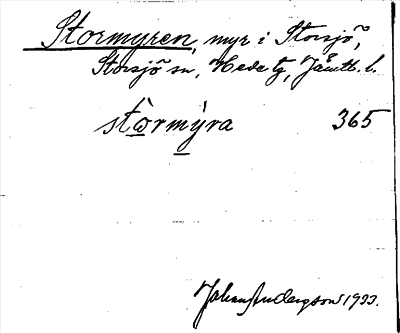 Stormyren, myr i Storsjö,
Storsjö sn, Hede tg, Jämtl. l.
stòrmỳra 365
Johan Andersson 1933.